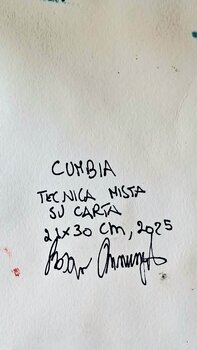 CUMBIA
TECNICA MISTA
SU CARTA
21x30 CM, 2025